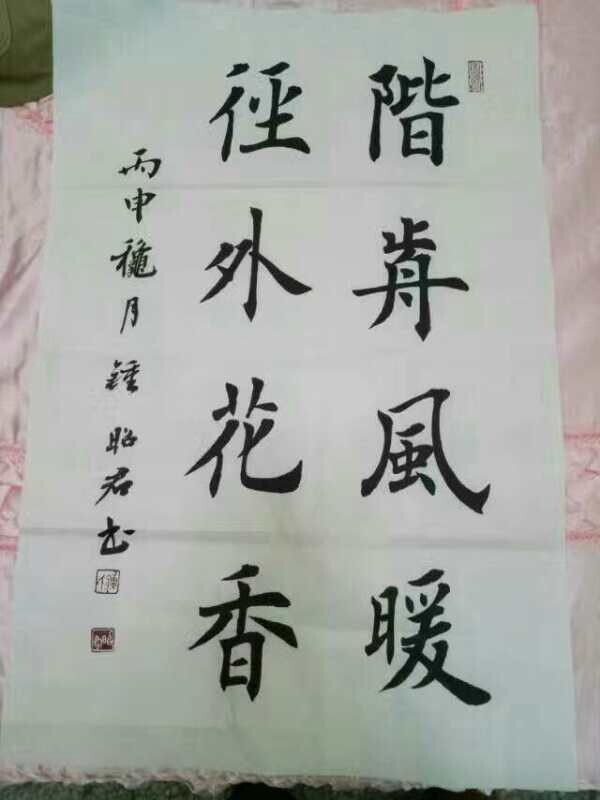 階歬風暖
徑外花香
丙申穐月鍾昭君书